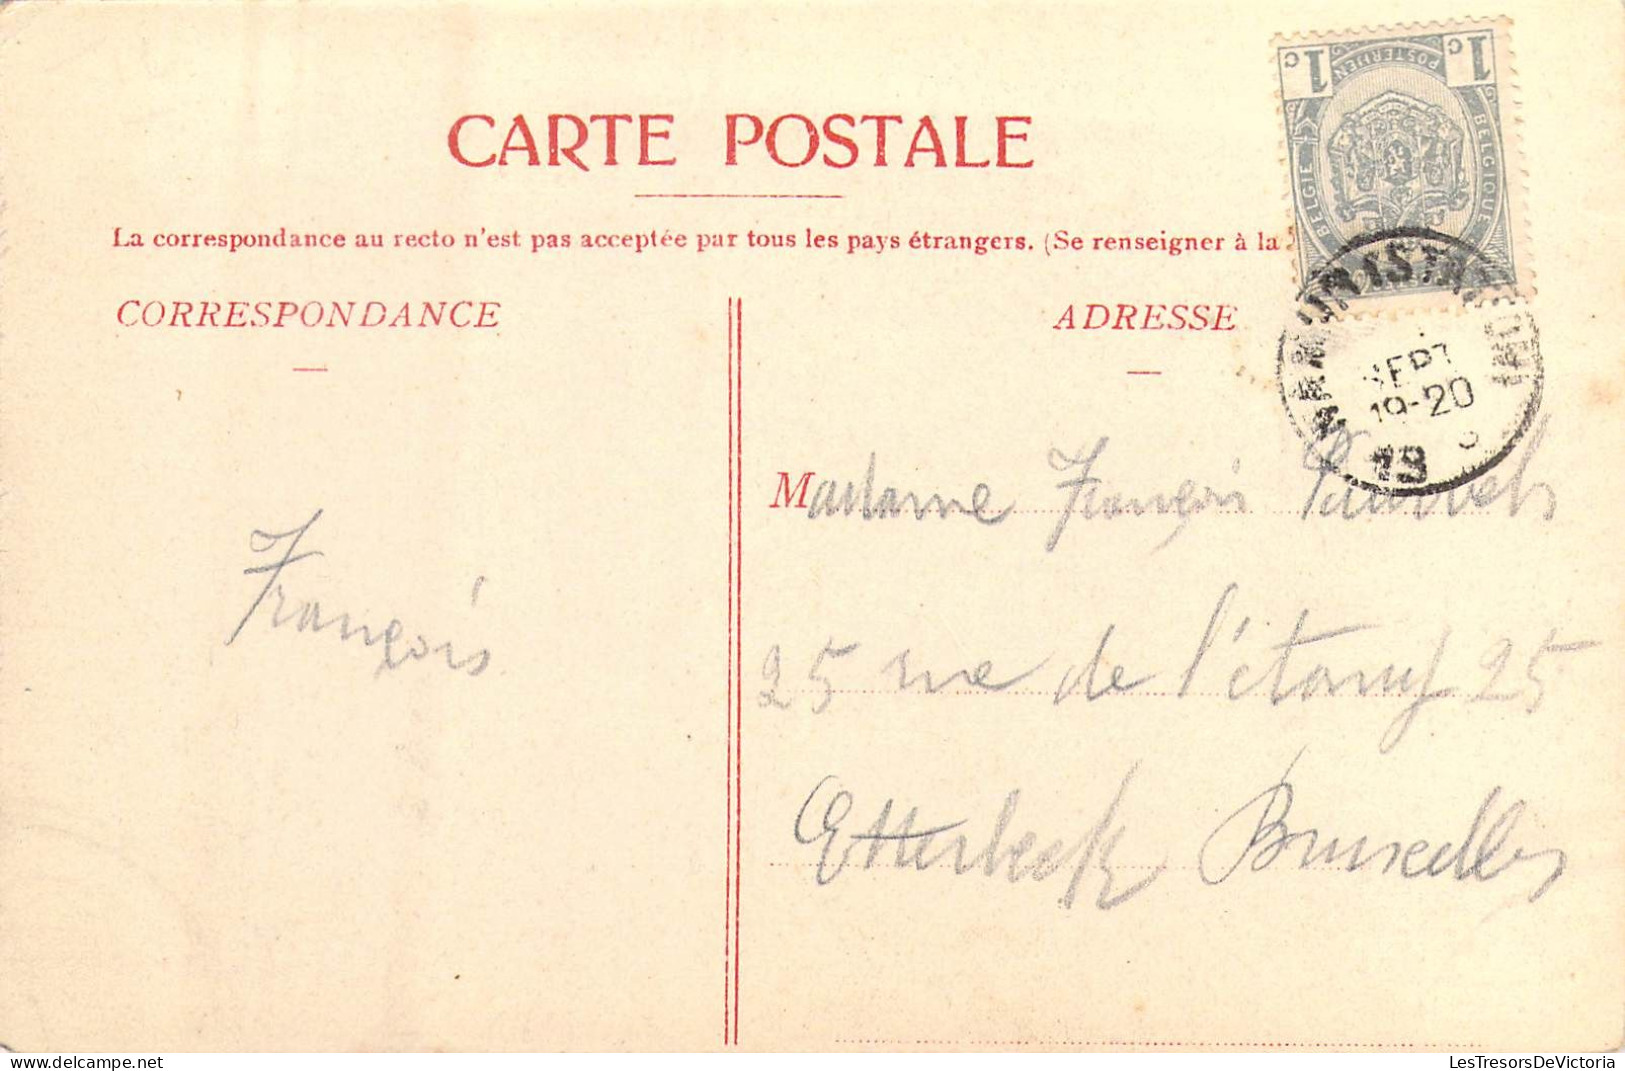 CARTE POSTALE
1c 1c
POSTERIJEN
BELGIE BELGIQUE
La correspondance au recto n'est pas acceptée par tous les pays étrangers. (Se renseigner à la
CORRESPONDANCE
ADRESSE
SEPT
19-20
Madame François Pauwels
François
25 rue de l'étang 25
Etterbeek Bruxelles
LesTresorsDeVictoria
https://www.delcampe.net